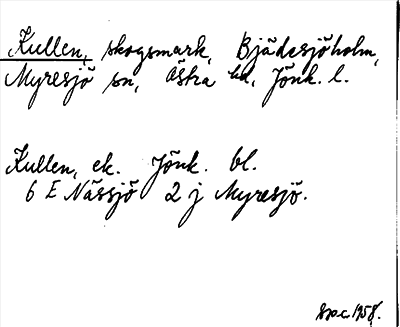 Kullen, skogsmark, Bjädesjöholm,
Myresjö sn, Östra hd, Jönk. l.
Kullen, ek. Jönk. bl.
6 E Nässjö 2 j Myresjö.
1958.